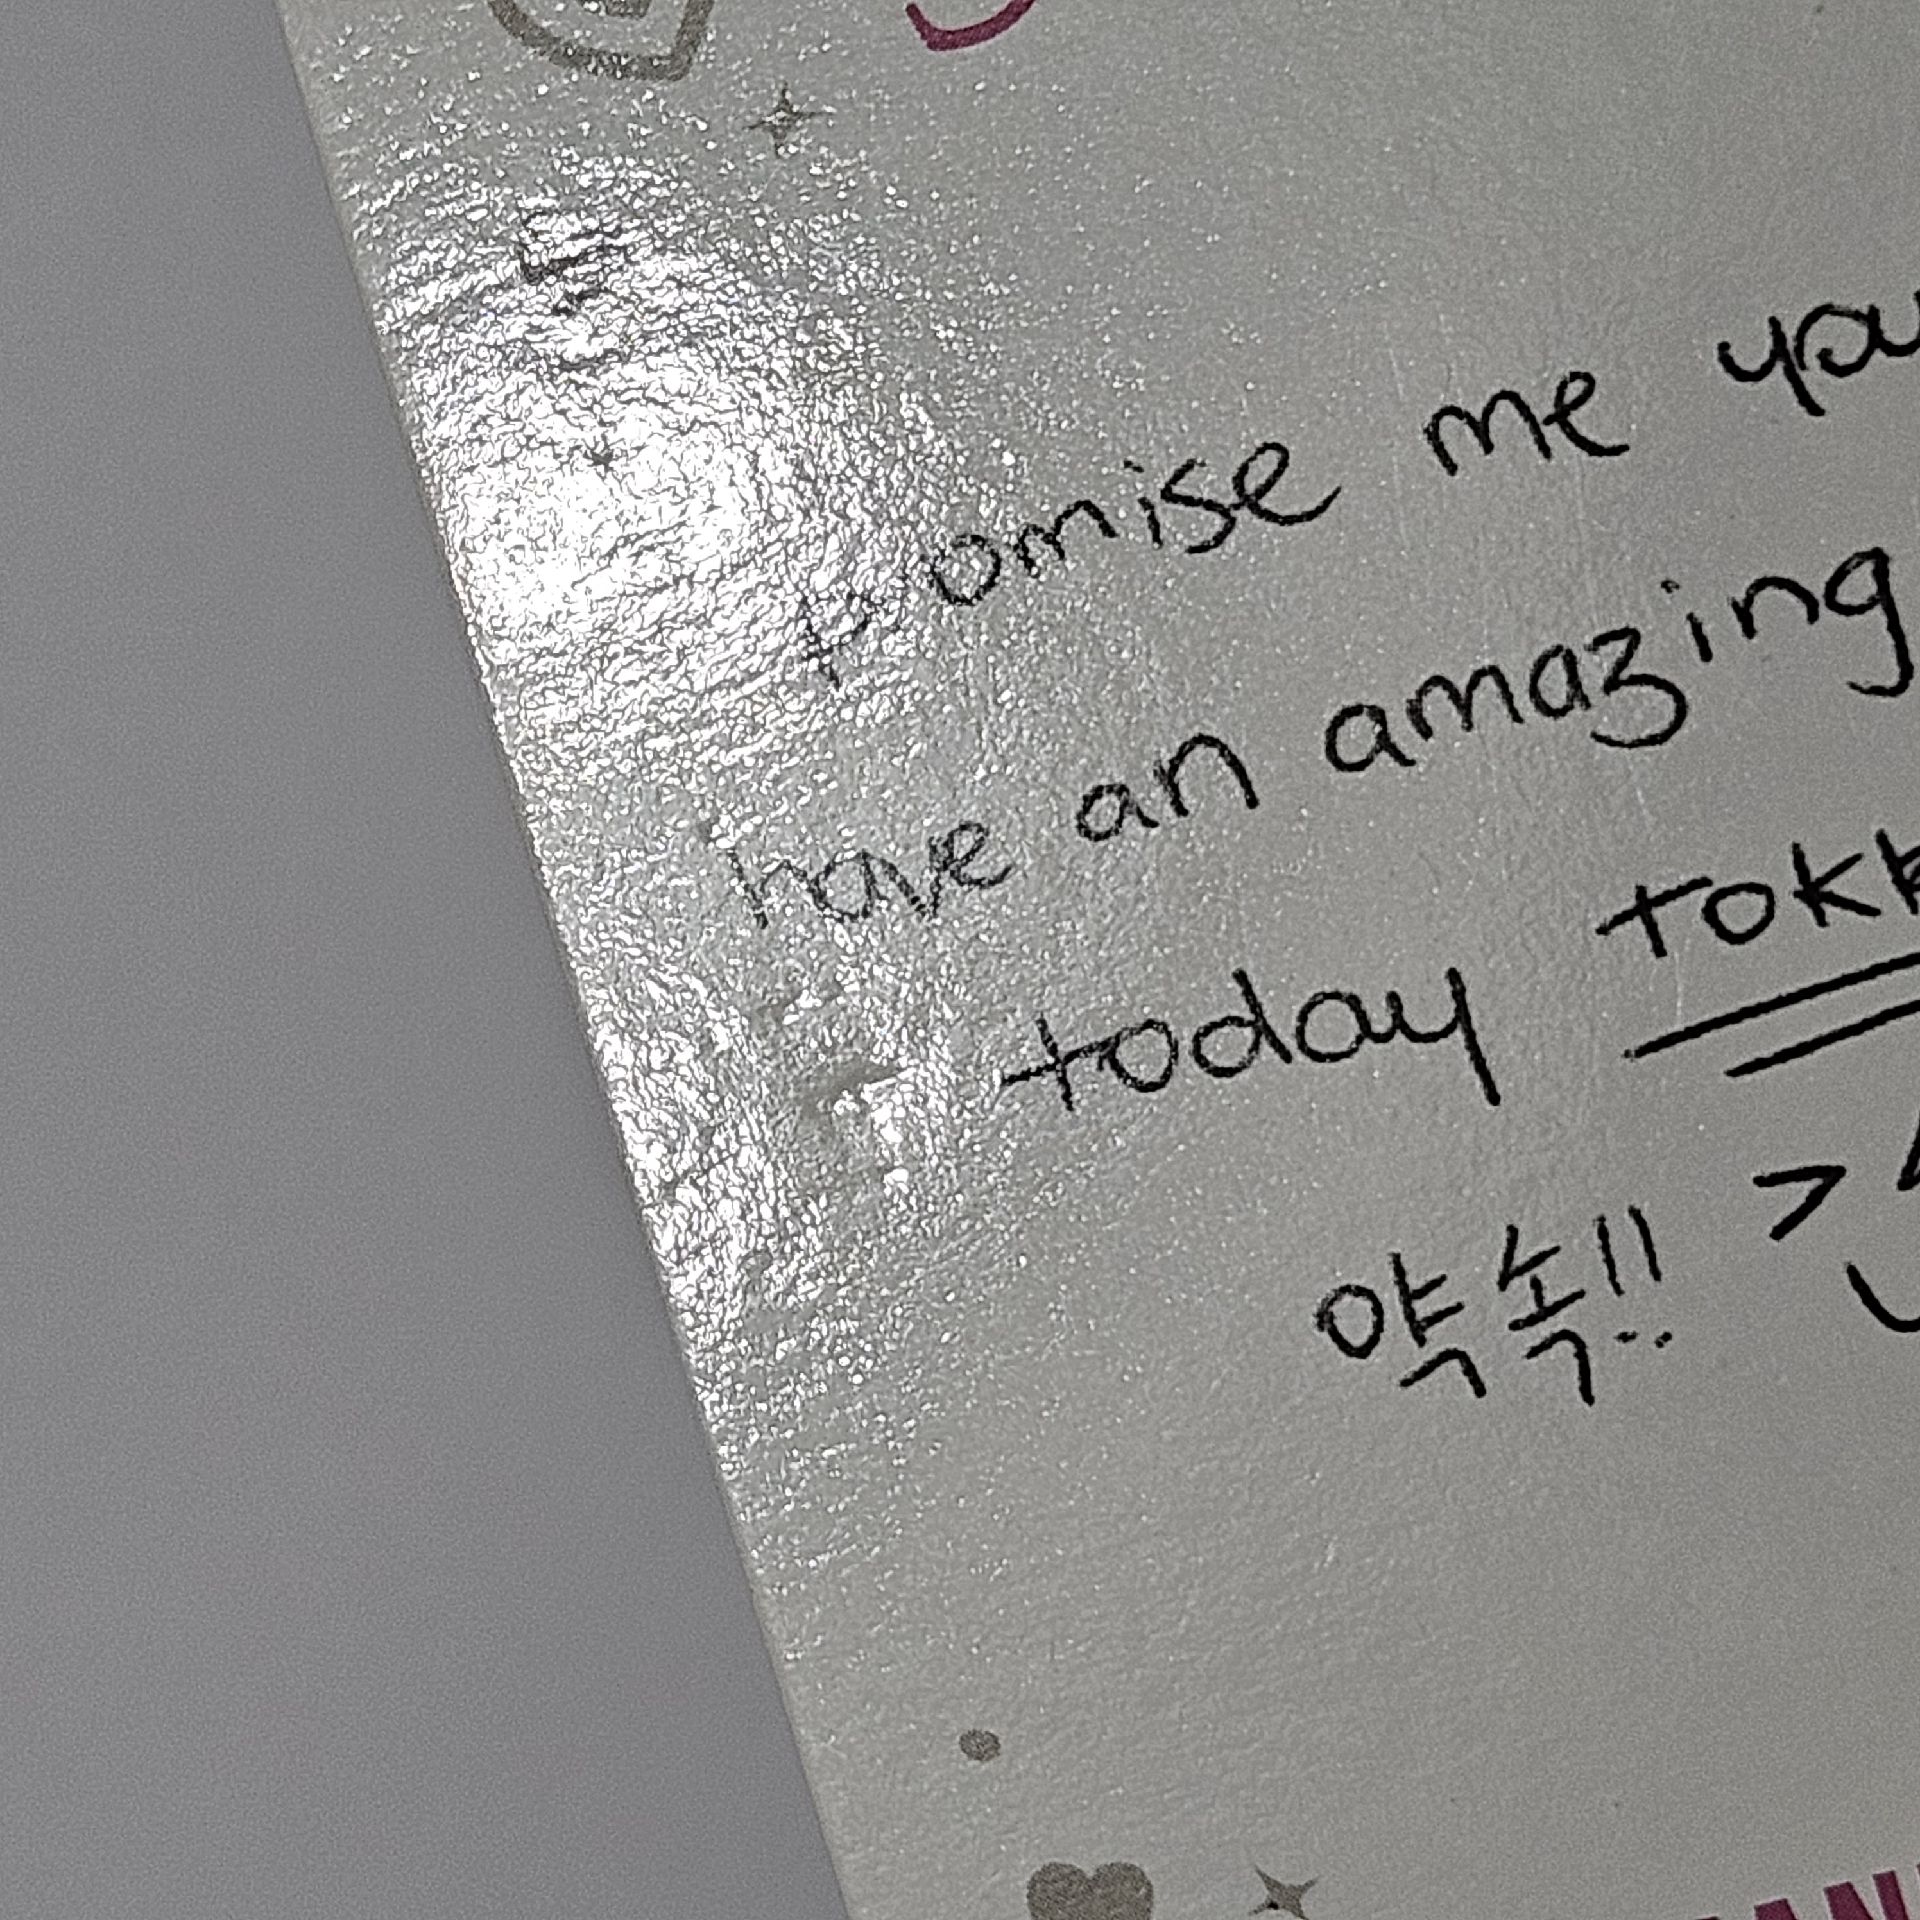 promise me you
have an amazing
today tokk
약속!! >
AN